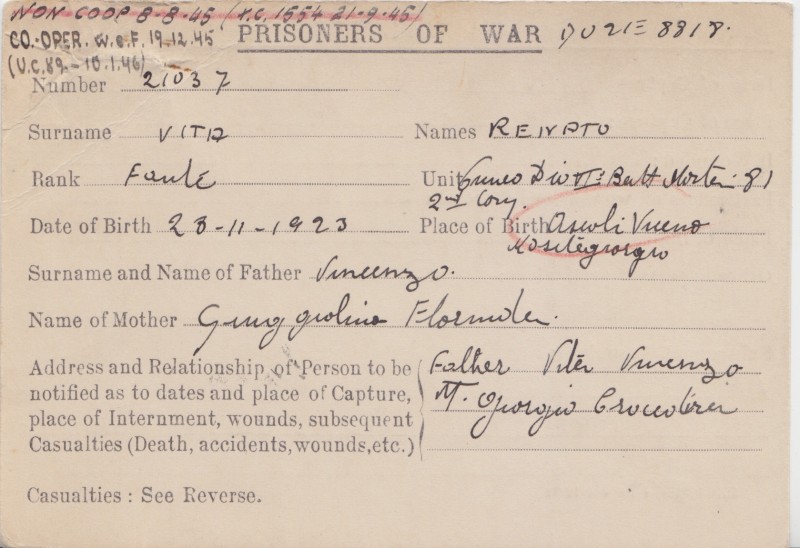 NON COOP 8-8-45 (V.C. 1554 21-9-45)
CO-OPER. W.E.F. 19.12.45
(U.C. 89 - 10.1.46)
PRISONERS OF WAR
8818.
Number 21037
Surname VITA
Names RENATO
Rank Fante
Unit Cuneo Div VI: Batt Mortai 81
2nd Cory.
Date of Birth 23-11-1923
Place of Birth Ascoli Piceno
Surname and Name of Father Vincenzo.
Name of Mother
Address and Relationship of Person to be
notified as to dates and place of Capture,
place of Internment, wounds, subsequent
Casualties (Death, accidents, wounds, etc.)
Father Vita Vincenzo
M. Giorgio
Casualties : See Reverse.